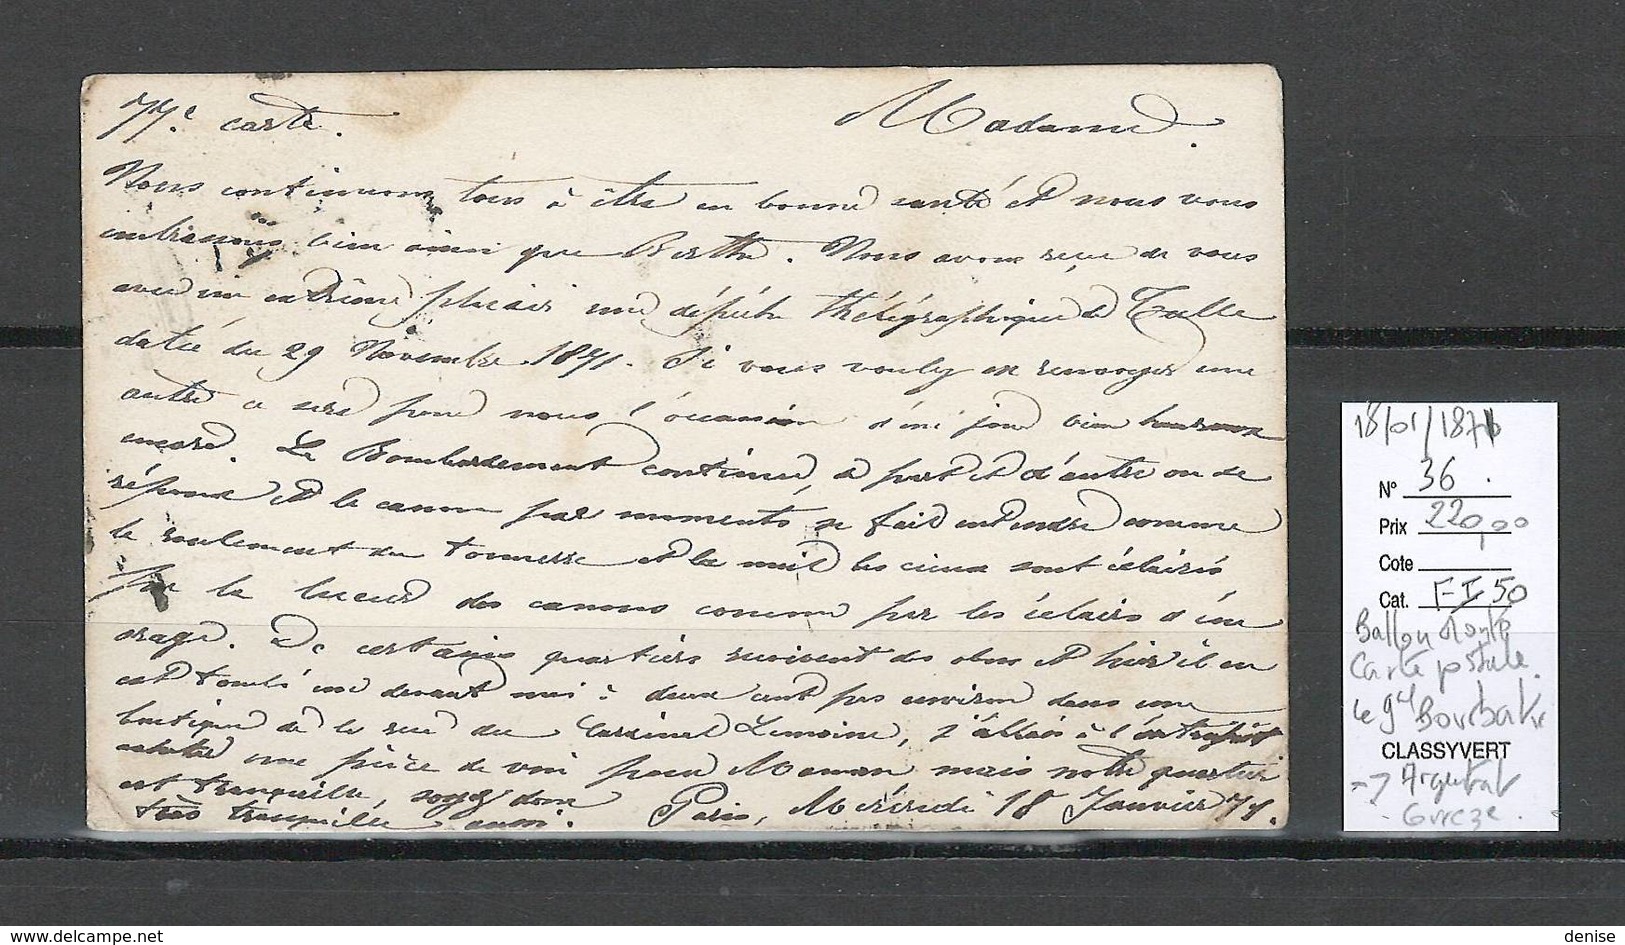 77.e carte. Madame.
Nous continuons tous à être en bonne santé et nous vous
embrassons bien ainsi que Berthe. Nous avons reçu de vous
avec un extrême plaisir une dépêche thélégraphique de Tulle
datée du 29 Novembre 1871. Si vous vouliez en renvoyer une
autre ce sera pour nous l'occasion d'un jour bien heureux
encore. Le Bombardement continue, à part et d'autre on se
répond et le canon par moments, se fait entendre comme
le roulement du tonnerre et la nuit les cieux sont éclairés
par la lueur des canons comme par les éclairs d'un
orage. De certains quartiers reçoivent des obus et hier il en
est tombé un devant moi à deux cent pas environ dans une
boutique de la rue du Cardinal Lemoine, j'allais à l'entrepôt
acheter une pièce de vin pour Maman mais notre quartier
est tranquille, soyez donc
très tranquilles aussi. Paris, Mercredi 18 Janvier 71.
18/01/1871
N° 36.
Prix 220,00
Cote
Cat. F-I 50
Ballon Monté
Carte postale.
Le gal Bourbaki
CLASSYVERT
-> Argentat
- Corrèze.
www.delcampe.net
denise